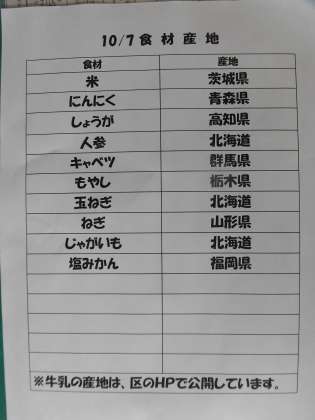 10/7 食材産地
食材 産地
米 茨城県
にんにく 青森県
しょうが 高知県
人参 北海道
キャベツ 群馬県
もやし 栃木県
玉ねぎ 北海道
ねぎ 山形県
じゃがいも 北海道
塩みかん 福岡県
※牛乳の産地は、区のHPで公開しています。